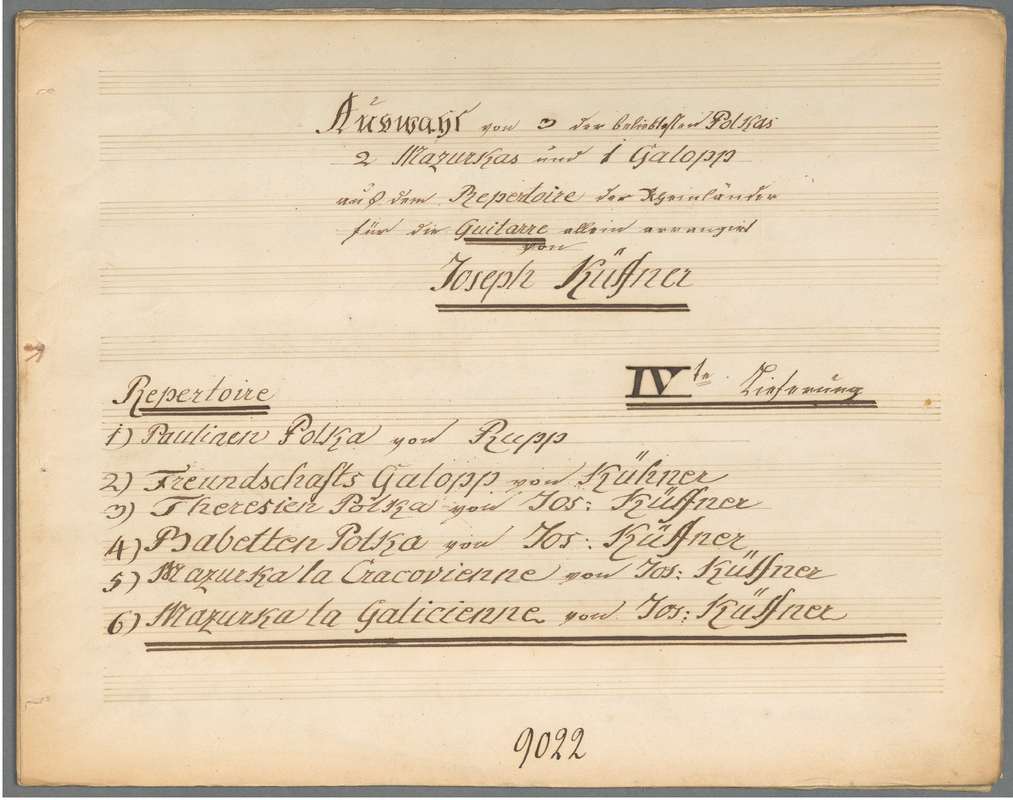 Auswahl von 3 der beliebtesten Polkas
2 Mazurkas und 1 Galopp
aus dem Repertoire der Rheinländer
für die Guitarre allein arrangirt
von
Joseph Küffner
IVte Lieferung
Repertoire
1) Paulinen Polka von Rupp
2) Freundschafts Galopp von Kühner
3) Theresien Polka von Jos: Küffner
4) Babetten Polka von Jos: Küffner
5) Mazurka la Cracovienne von Jos: Küffner
6) Mazurka la Galicienne von Jos: Küffner
9022